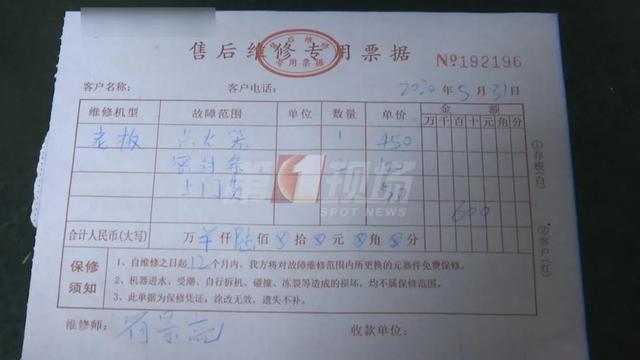 售后维修专用票据
售后维修
专用票据
№192196
客户名称： 客户电话： 2020年5月31日
维修机型 故障范围 单位 数量 单价 金额
万 千 百 十 元 角 分
老板 点火器 1 450
密封条 100
上门费 50
600
第1现场
SPOT NEWS
合计人民币(大写) 万 仟 陆 佰 拾 元 角 分
保修须知
1、自维修之日起12个月内，我方将对故障维修范围内所更换的元器件免费保修。
2、机器进水、受潮、自行拆机、碰撞、冻裂等造成的损坏，均不属保修范围。
3、此单据为保修凭证，涂改无效，遗失不补。
维修师： 收款单位：
①存根(白)
②客户(红)